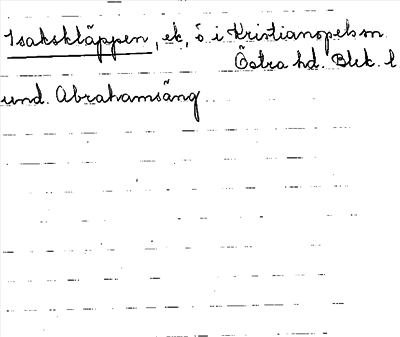 Isakskläppen, ek, ö i Kristianopels sn
Östra hd. Blek. l
und. Abrahamsäng